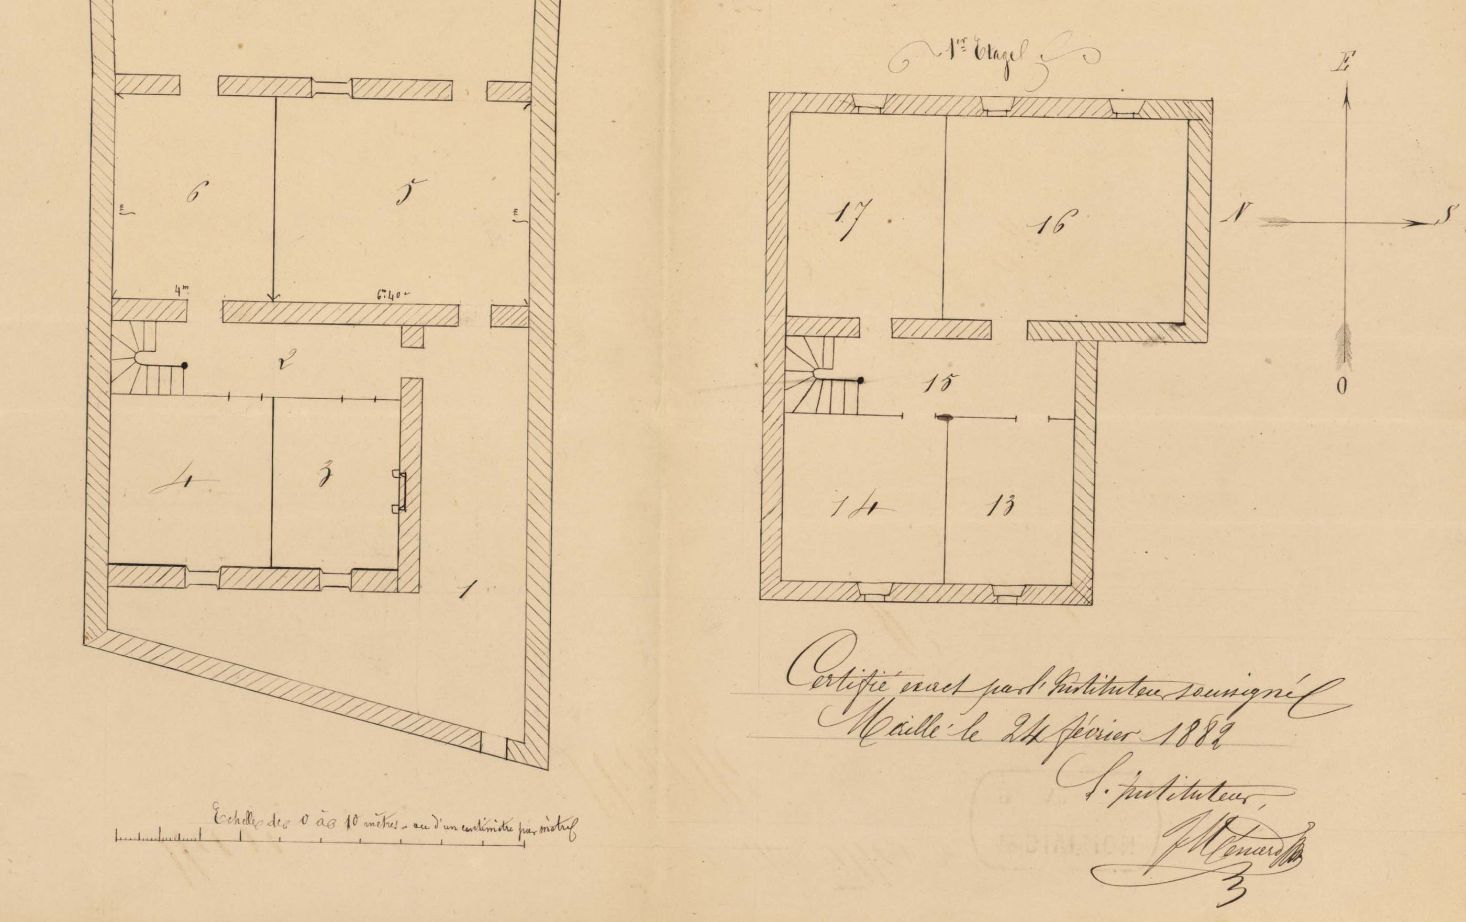 1er Etage
E
N
S
O
6
5
m
m
4m
6m40
2
4
3
1
17
16
15
14
13
Certifié exact par l'Instituteur soussigné
Maillé le 24 février 1882
L'instituteur,
Echelle de 0 à 10 mètres ou d'un centimètre par mètre